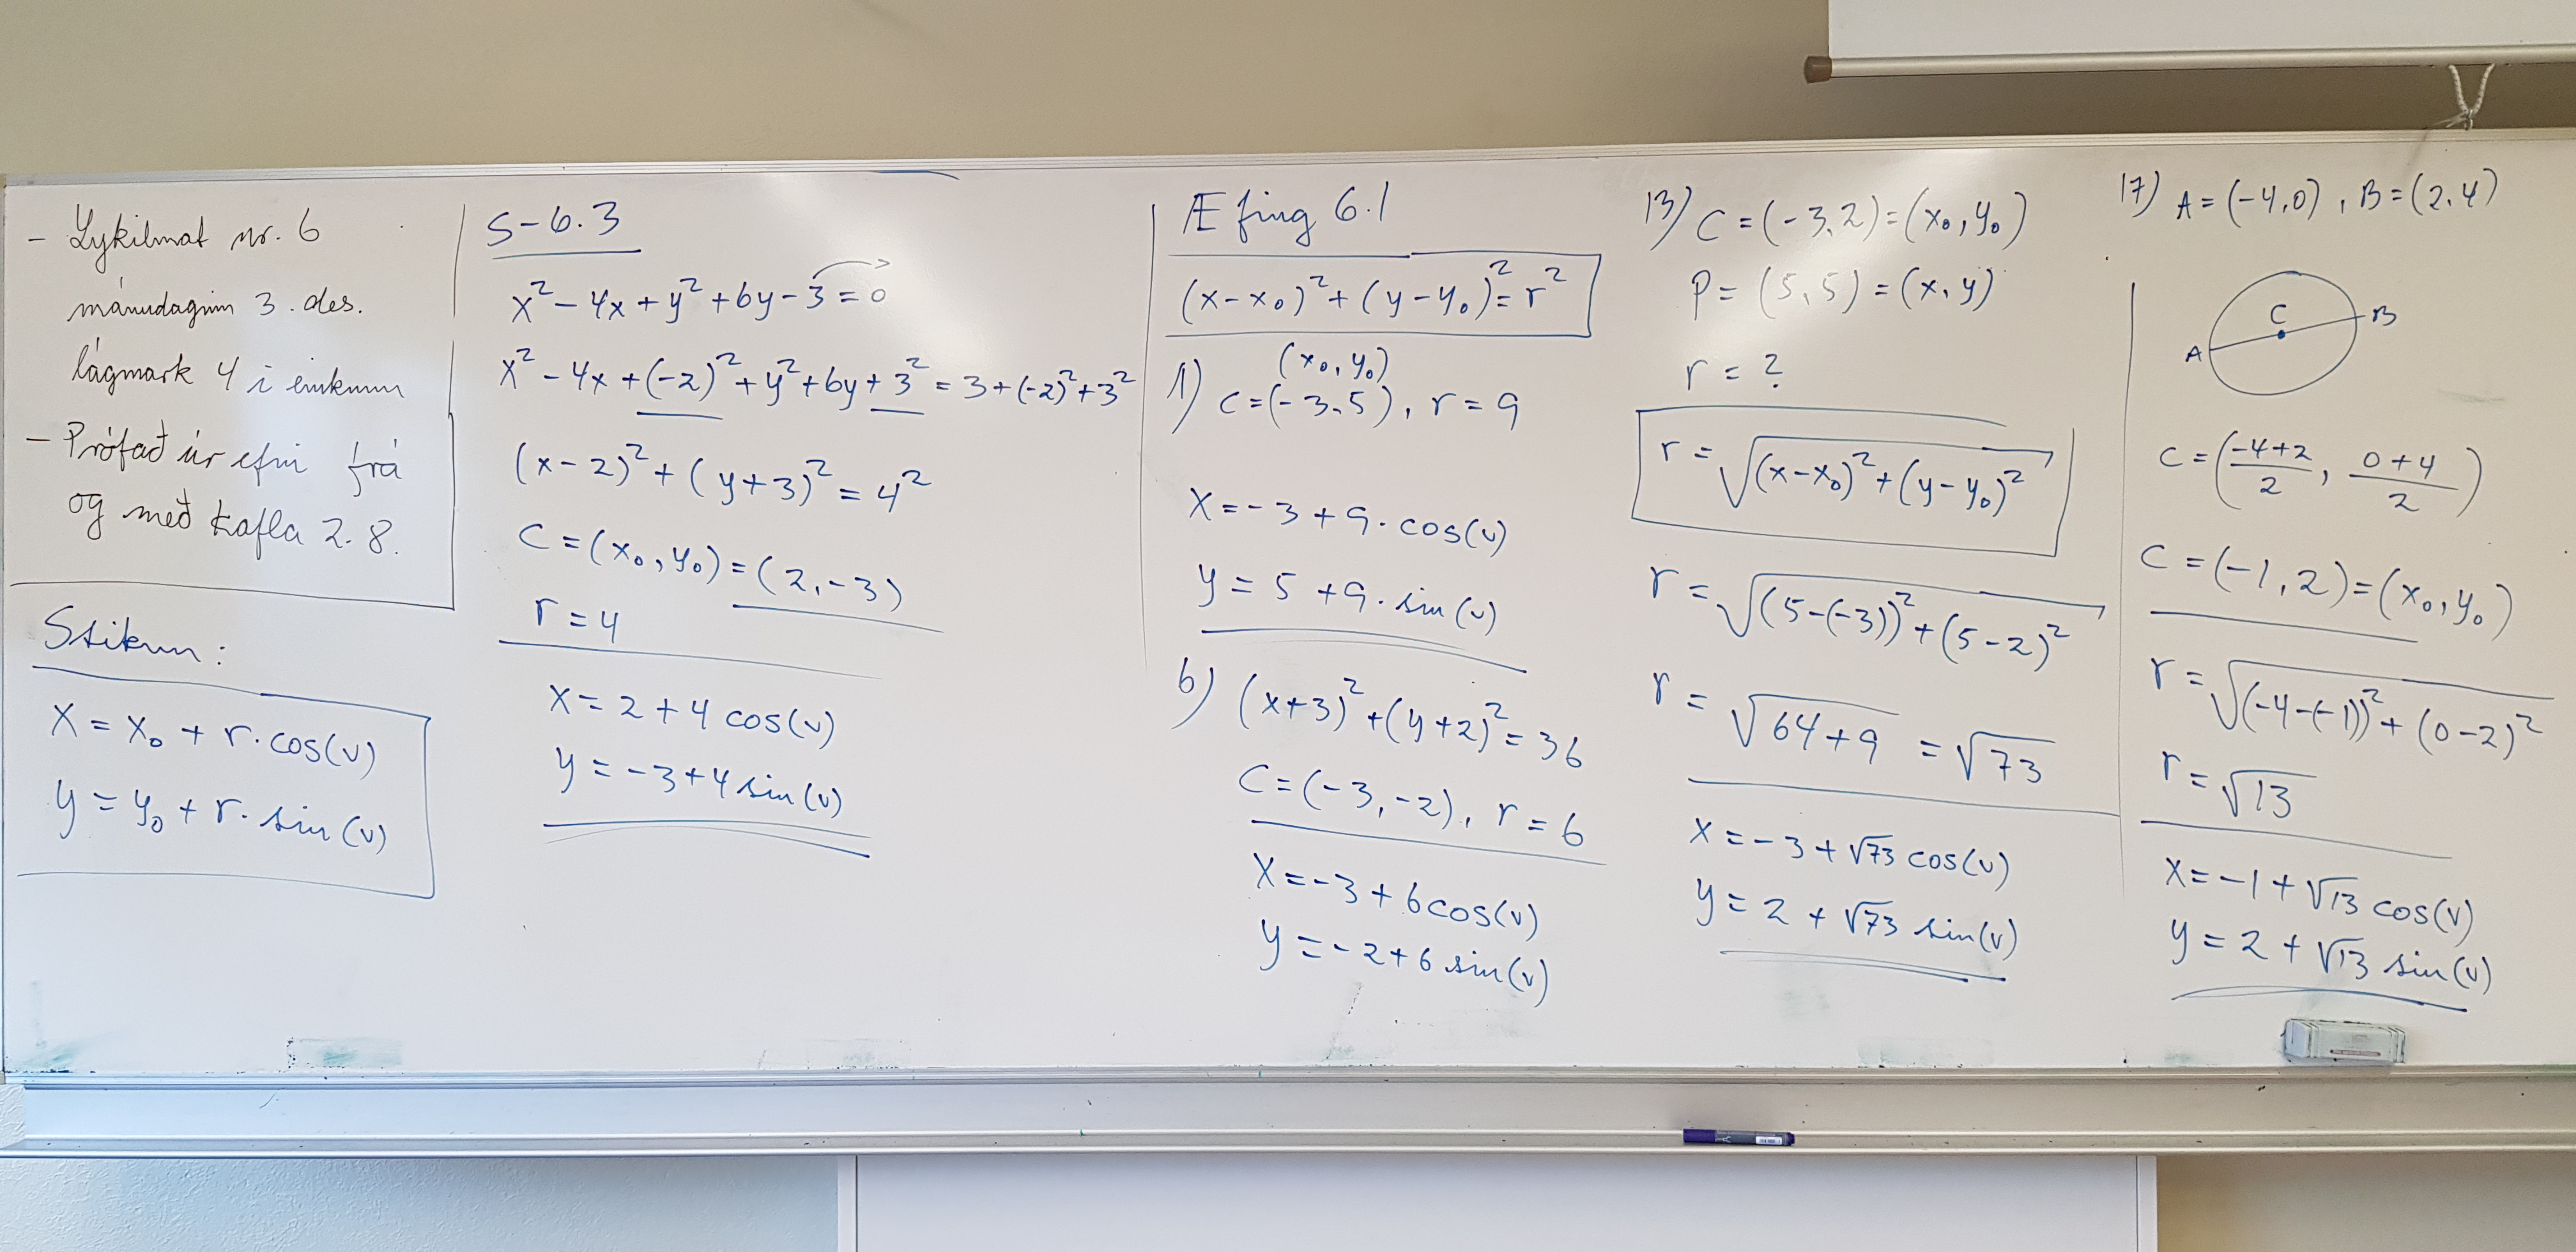 - Lykilmat nr. 6
mánudaginn 3. des.
lágmark 4 í einkunn
- Prófað úr efni frá
og með kafla 2.8.
Stikun:
x = x₀ + r·cos(v)
y = y₀ + r·sin(v)
S-6.3
x² - 4x + y² + 6y - 3 = 0
x² - 4x + (-2)² + y² + 6y + 3² = 3 + (-2)² + 3²
(x-2)² + (y+3)² = 4²
C = (x₀, y₀) = (2, -3)
r = 4
x = 2 + 4 cos(v)
y = -3 + 4 sin(v)
Æfing 6.1
(x-x₀)² + (y-y₀)² = r²
(x₀, y₀)
1) C = (-3, 5), r = 9
x = -3 + 9·cos(v)
y = 5 + 9·sin(v)
6) (x+3)² + (y+2)² = 36
C = (-3, -2), r = 6
x = -3 + 6cos(v)
y = -2 + 6 sin(v)
13) C = (-3, 2) = (x₀, y₀)
P = (5, 5) = (x, y)
r = ?
r = √((x-x₀)² + (y-y₀)²)
r = √((5-(-3))² + (5-2)²)
r = √(64+9) = √73
x = -3 + √73 cos(v)
y = 2 + √73 sin(v)
17) A = (-4, 0), B = (2, 4)
C
A
B
C = ((-4+2)/2, (0+4)/2)
C = (-1, 2) = (x₀, y₀)
r = √((-4-(-1))² + (0-2)²)
r = √13
x = -1 + √13 cos(v)
y = 2 + √13 sin(v)